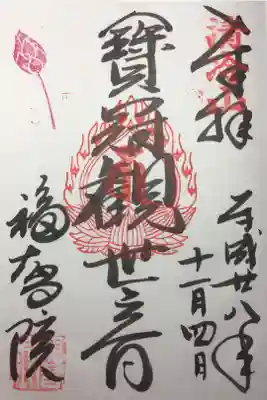 奉拝
平成廿八年
十一月四日
寶冠観世音
福智院